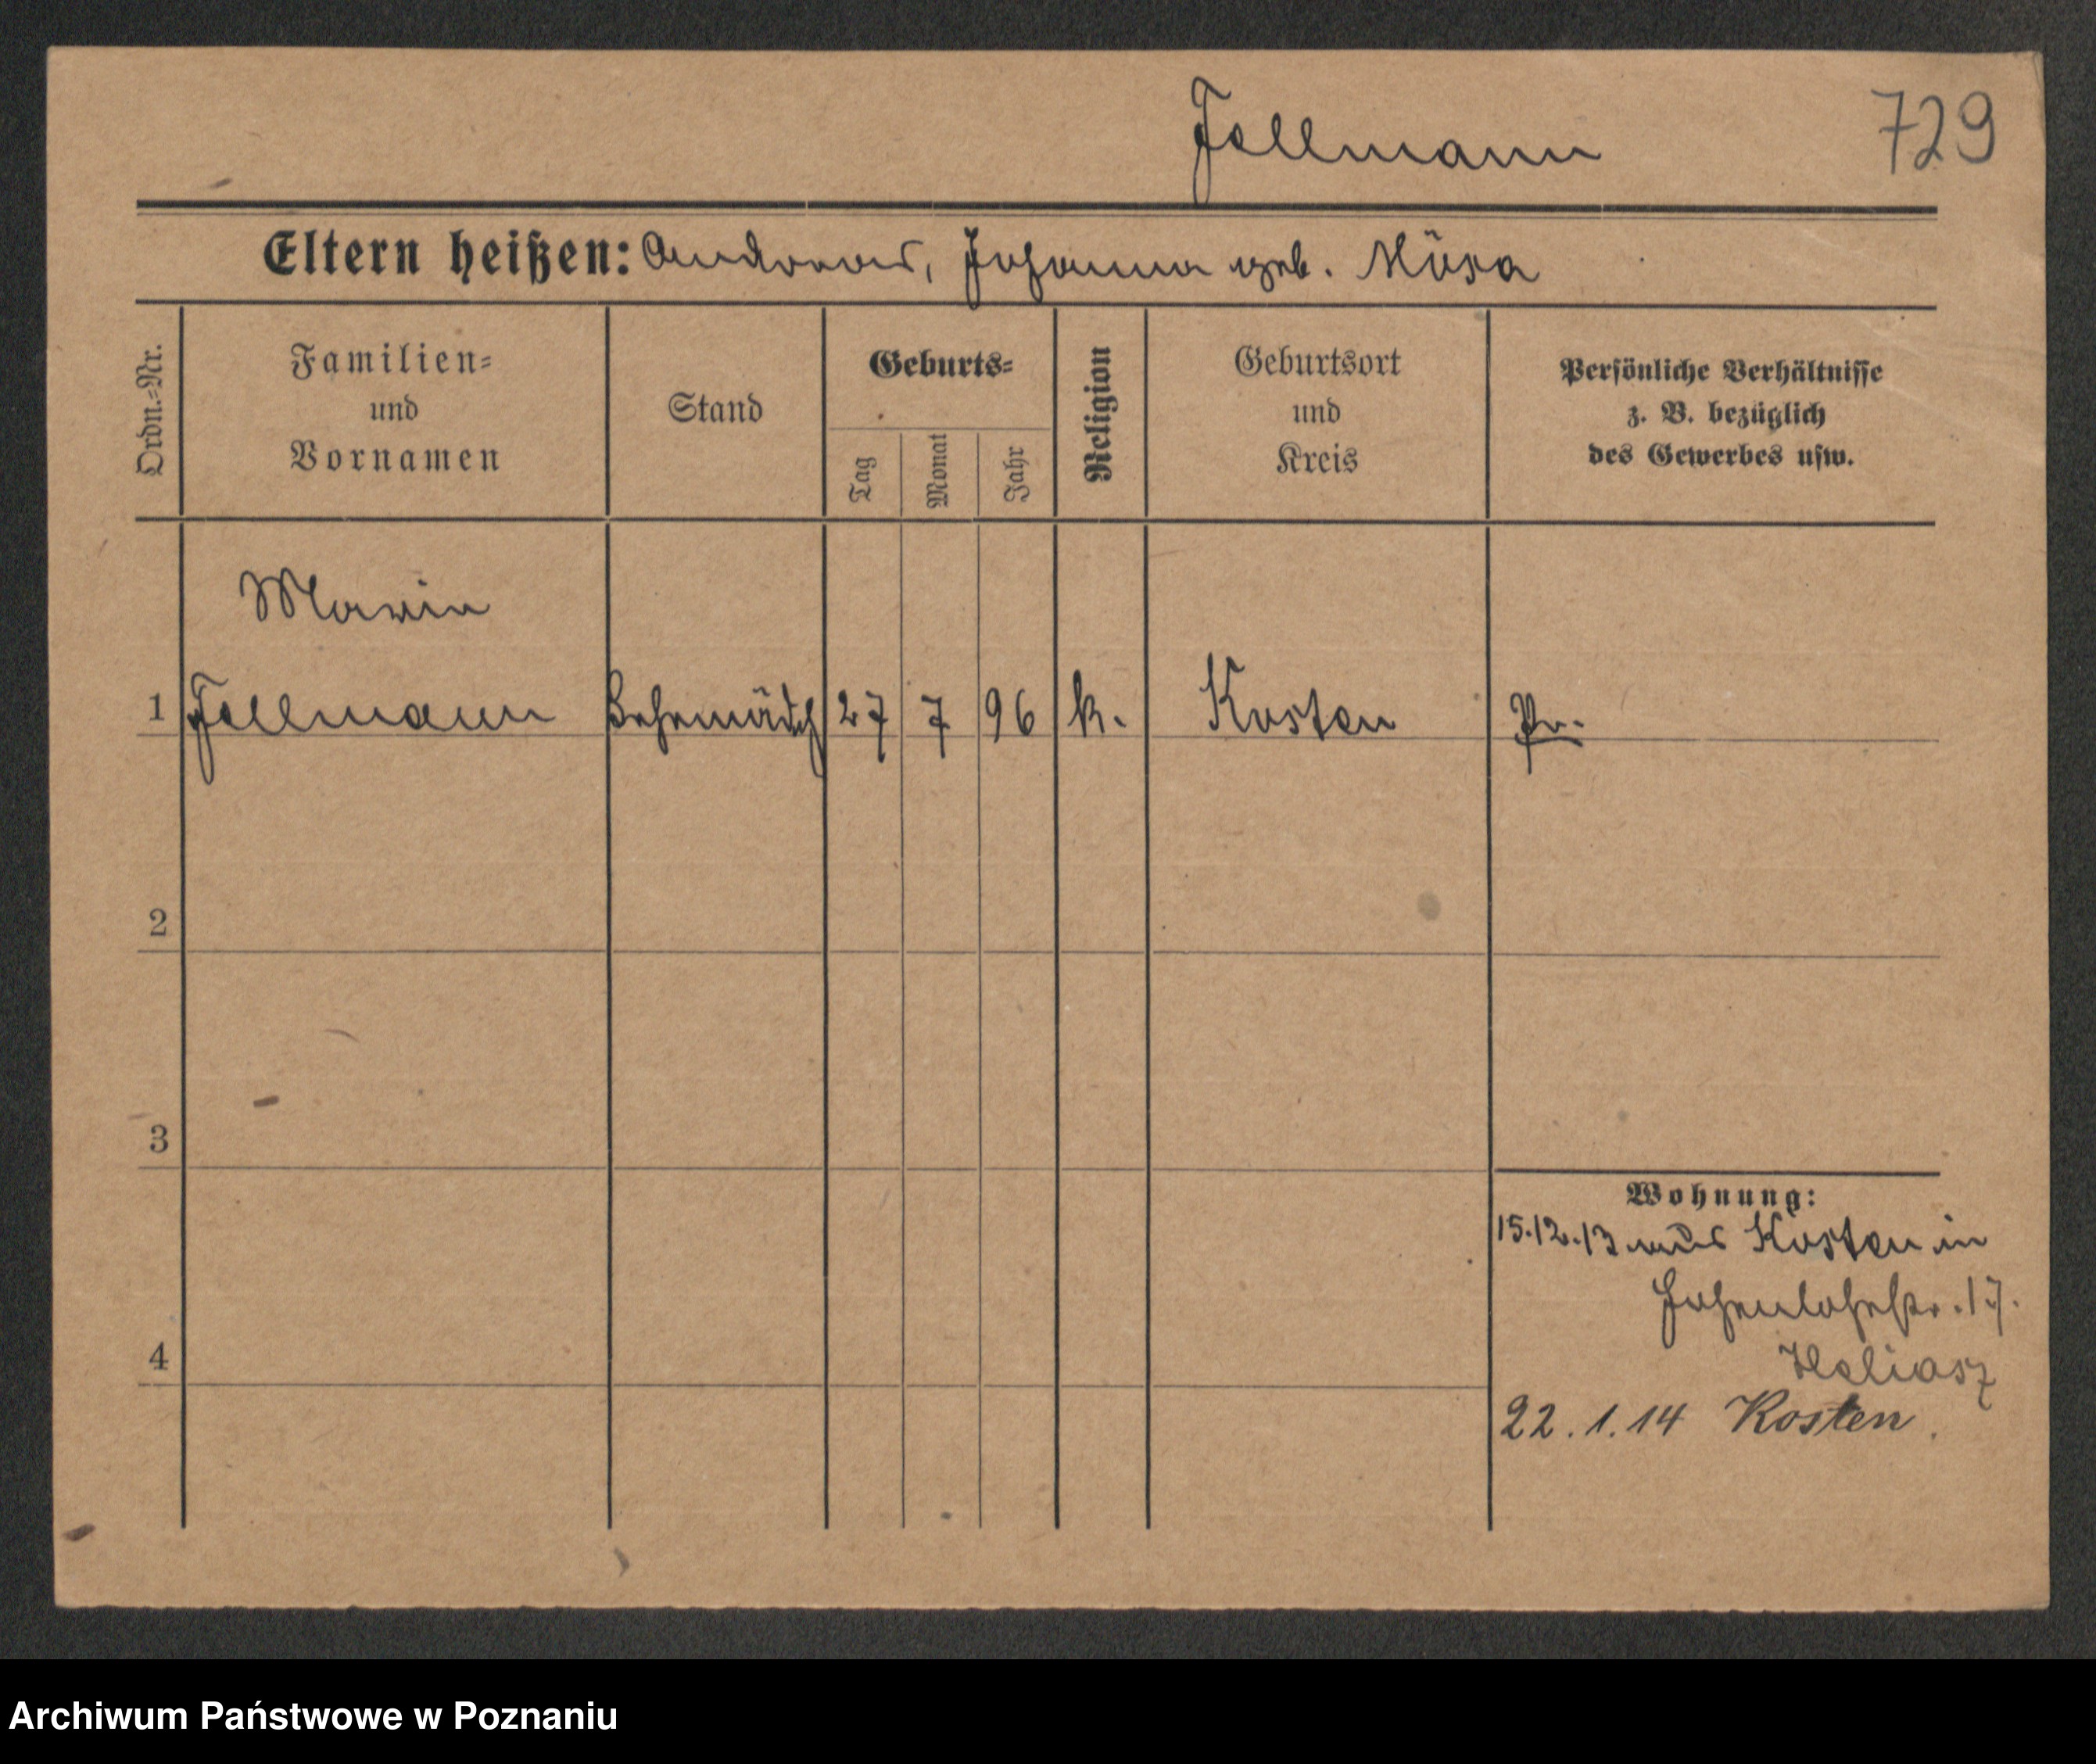 Follmann
729
Eltern heißen: Andreas, Johanna geb.
Ordn.-Nr.
Familien-
und
Vornamen
Stand
Geburts-
Tag
Monat
Jahr
Religion
Geburtsort
und
Kreis
Persönliche Verhältnisse
z. B. bezüglich
des Gewerbes usw.
Maria
1 Follmann 27 7 96 k. Kosten Pr.
2
3
4
Wohnung:
15.12.13 aus Kosten in
Hohenlohestr. 17.
Heliasz
22.1.14 Kosten
Archiwum Państwowe w Poznaniu